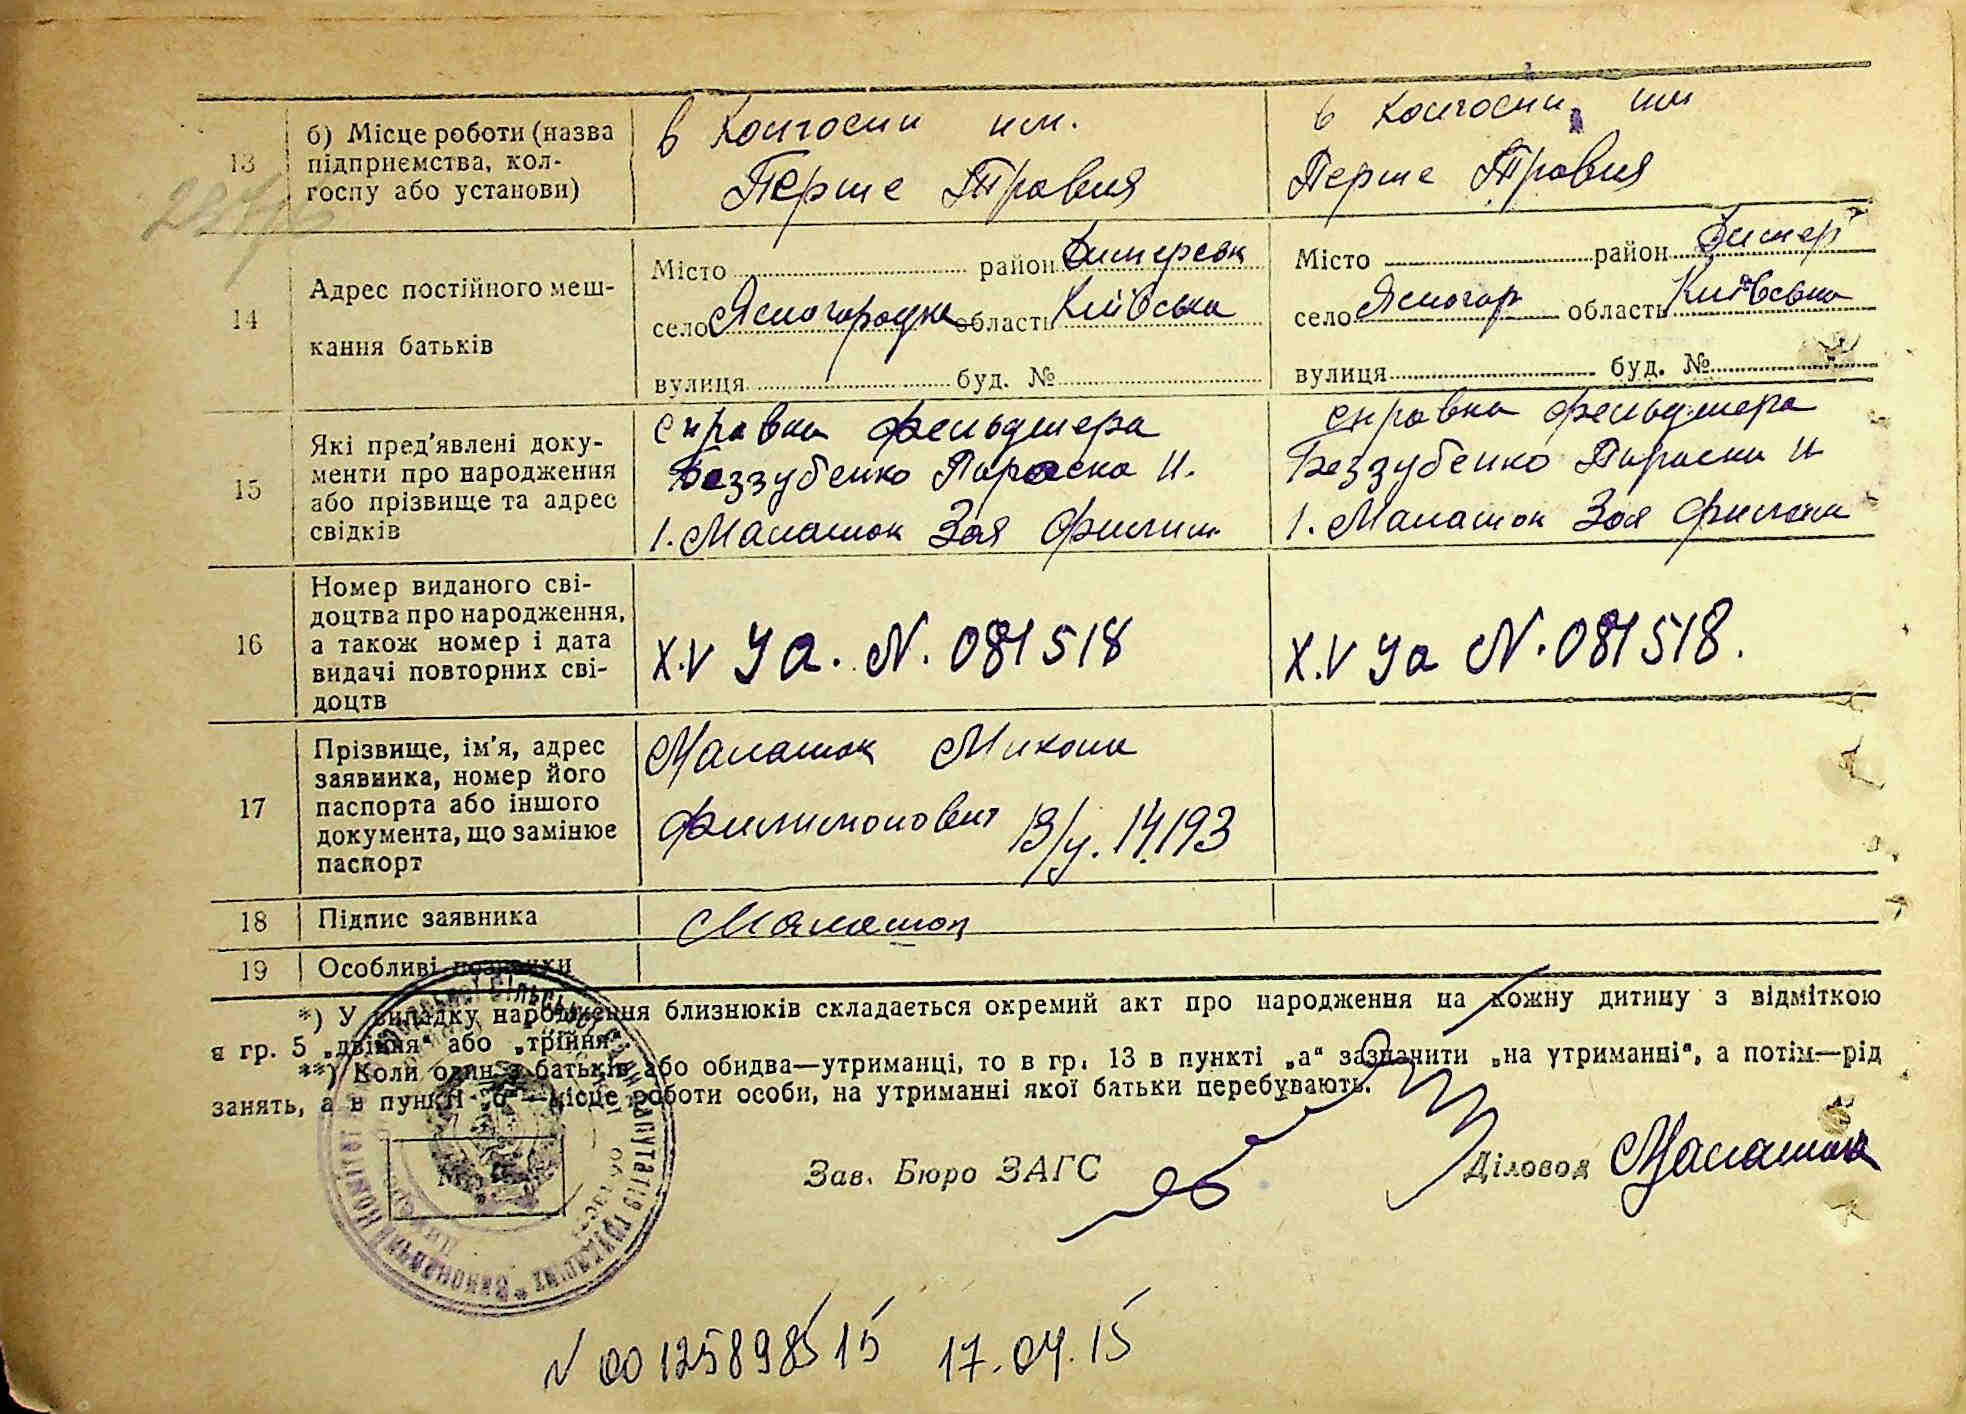 13
б) Місце роботи (назва
підприємства, кол-
госпу або установи)
в колгоспи им.
Перше Травня
в колгоспи им
Перше Травня
14
Адрес постійного меш-
кання батьків
Місто район Димерськ
село Ясногородка область Київська
вулиця буд. №
Місто район Димер
село Ясногор область Київська
вулиця буд. №
15
Які пред'явлені доку-
менти про народження
або прізвище та адрес
свідків
справка фельдшера
Беззубенко Параска И.
1. Малашок Зоя Филим
справка фельдшера
Беззубенко Параски И
1. Малашок Зоя Филим
16
Номер виданого сві-
доцтва про народження,
а також номер і дата
видачі повторних сві-
доцтв
X.V УА. N. 081518
X.V Уа N. 081518.
17
Прізвище, ім'я, адрес
заявника, номер його
паспорта або іншого
документа, що замінює
паспорт
Малашок Микола
Филимонович
18
Підпис заявника
Малашок
19
Особливі познаки
*) У випадку народження близнюків складається окремий акт про народження на кожну дитину з відміткою
в гр. 5 „двійня“ або „трійня“.
**) Коли один з батьків або обидва—утриманці, то в гр. 13 в пункті „а“ зазначити „на утриманні“, а потім—рід
занять, а в пункті „б“—місце роботи особи, на утриманні якої батьки перебувають.
Зав. Бюро ЗАГС
Діловод Малашок
N 00125898515 17.04.15